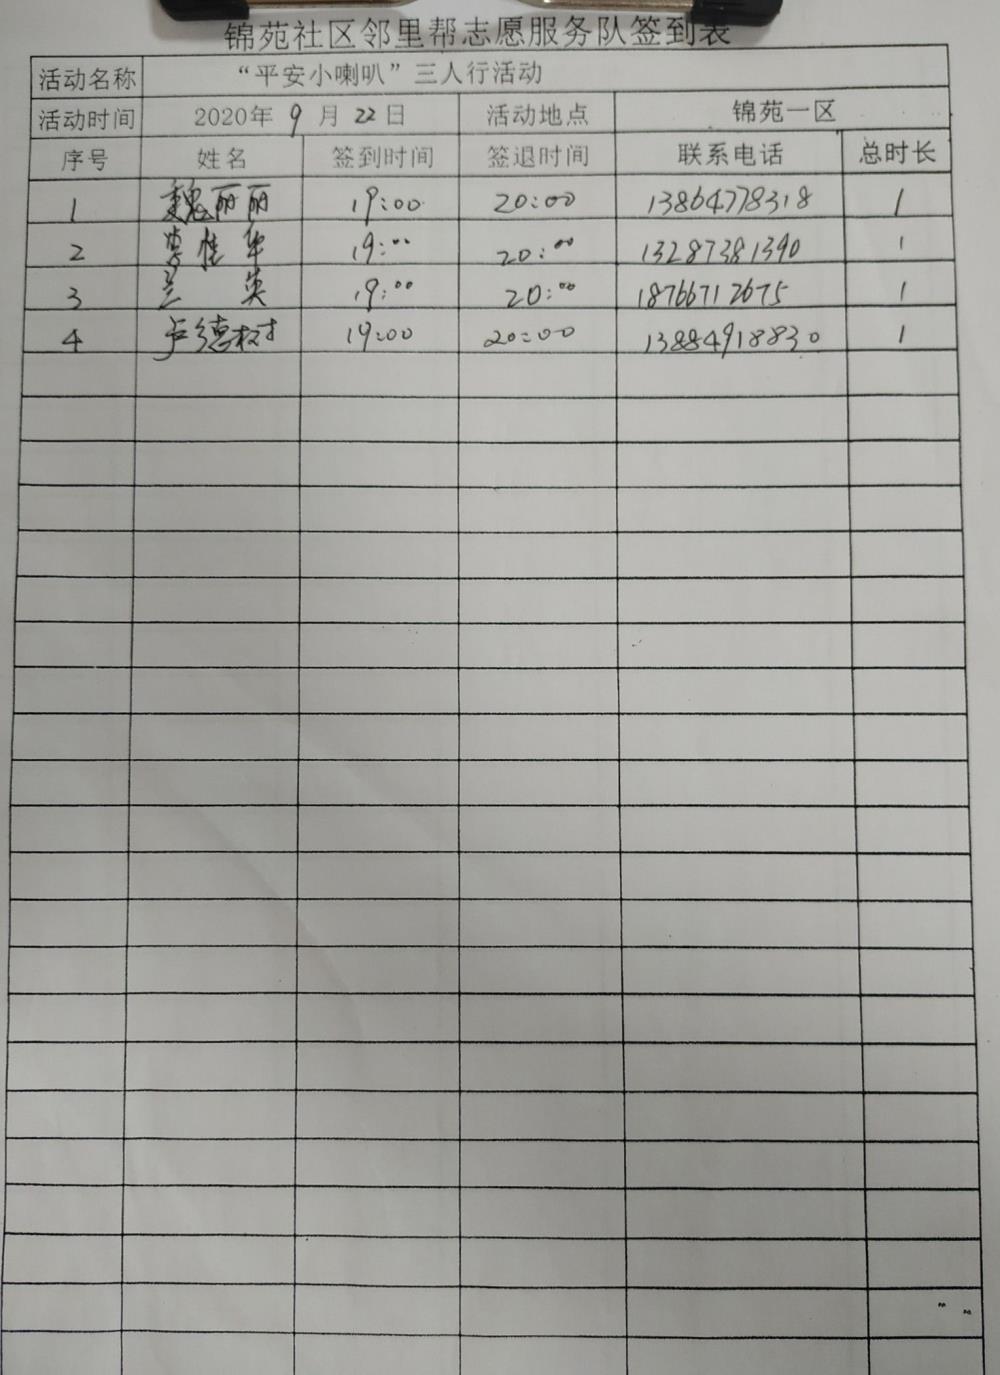 锦苑社区邻里帮志愿服务队签到表
活动名称 “平安小喇叭”三人行活动
活动时间 2020年 9 月 22 日 活动地点 锦苑一区
序号 姓名 签到时间 签退时间 联系电话 总时长
1 魏丽丽 19:00 20:00 13864778318 1
2 19:00 20:00 13287381390 1
3 兰英 19:00 20:00 18766712675 1
4 卢德树 19:00 20:00 13884918830 1